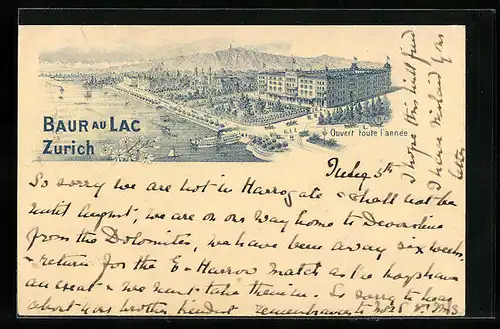 BAUR AU LAC
Zurich
Ouvert toute l'année
July 5th
So sorry we are not in Harrogate & shall not be
until August, we are on our way home to Devonshire
from the Dolomites, we have been away six weeks,
& return for the E-Harrow match as the boys have
an exeat & we must take them in. So sorry to hear
about your brother kindest remembrances to
I hope this will find
I have mislaid your
letter